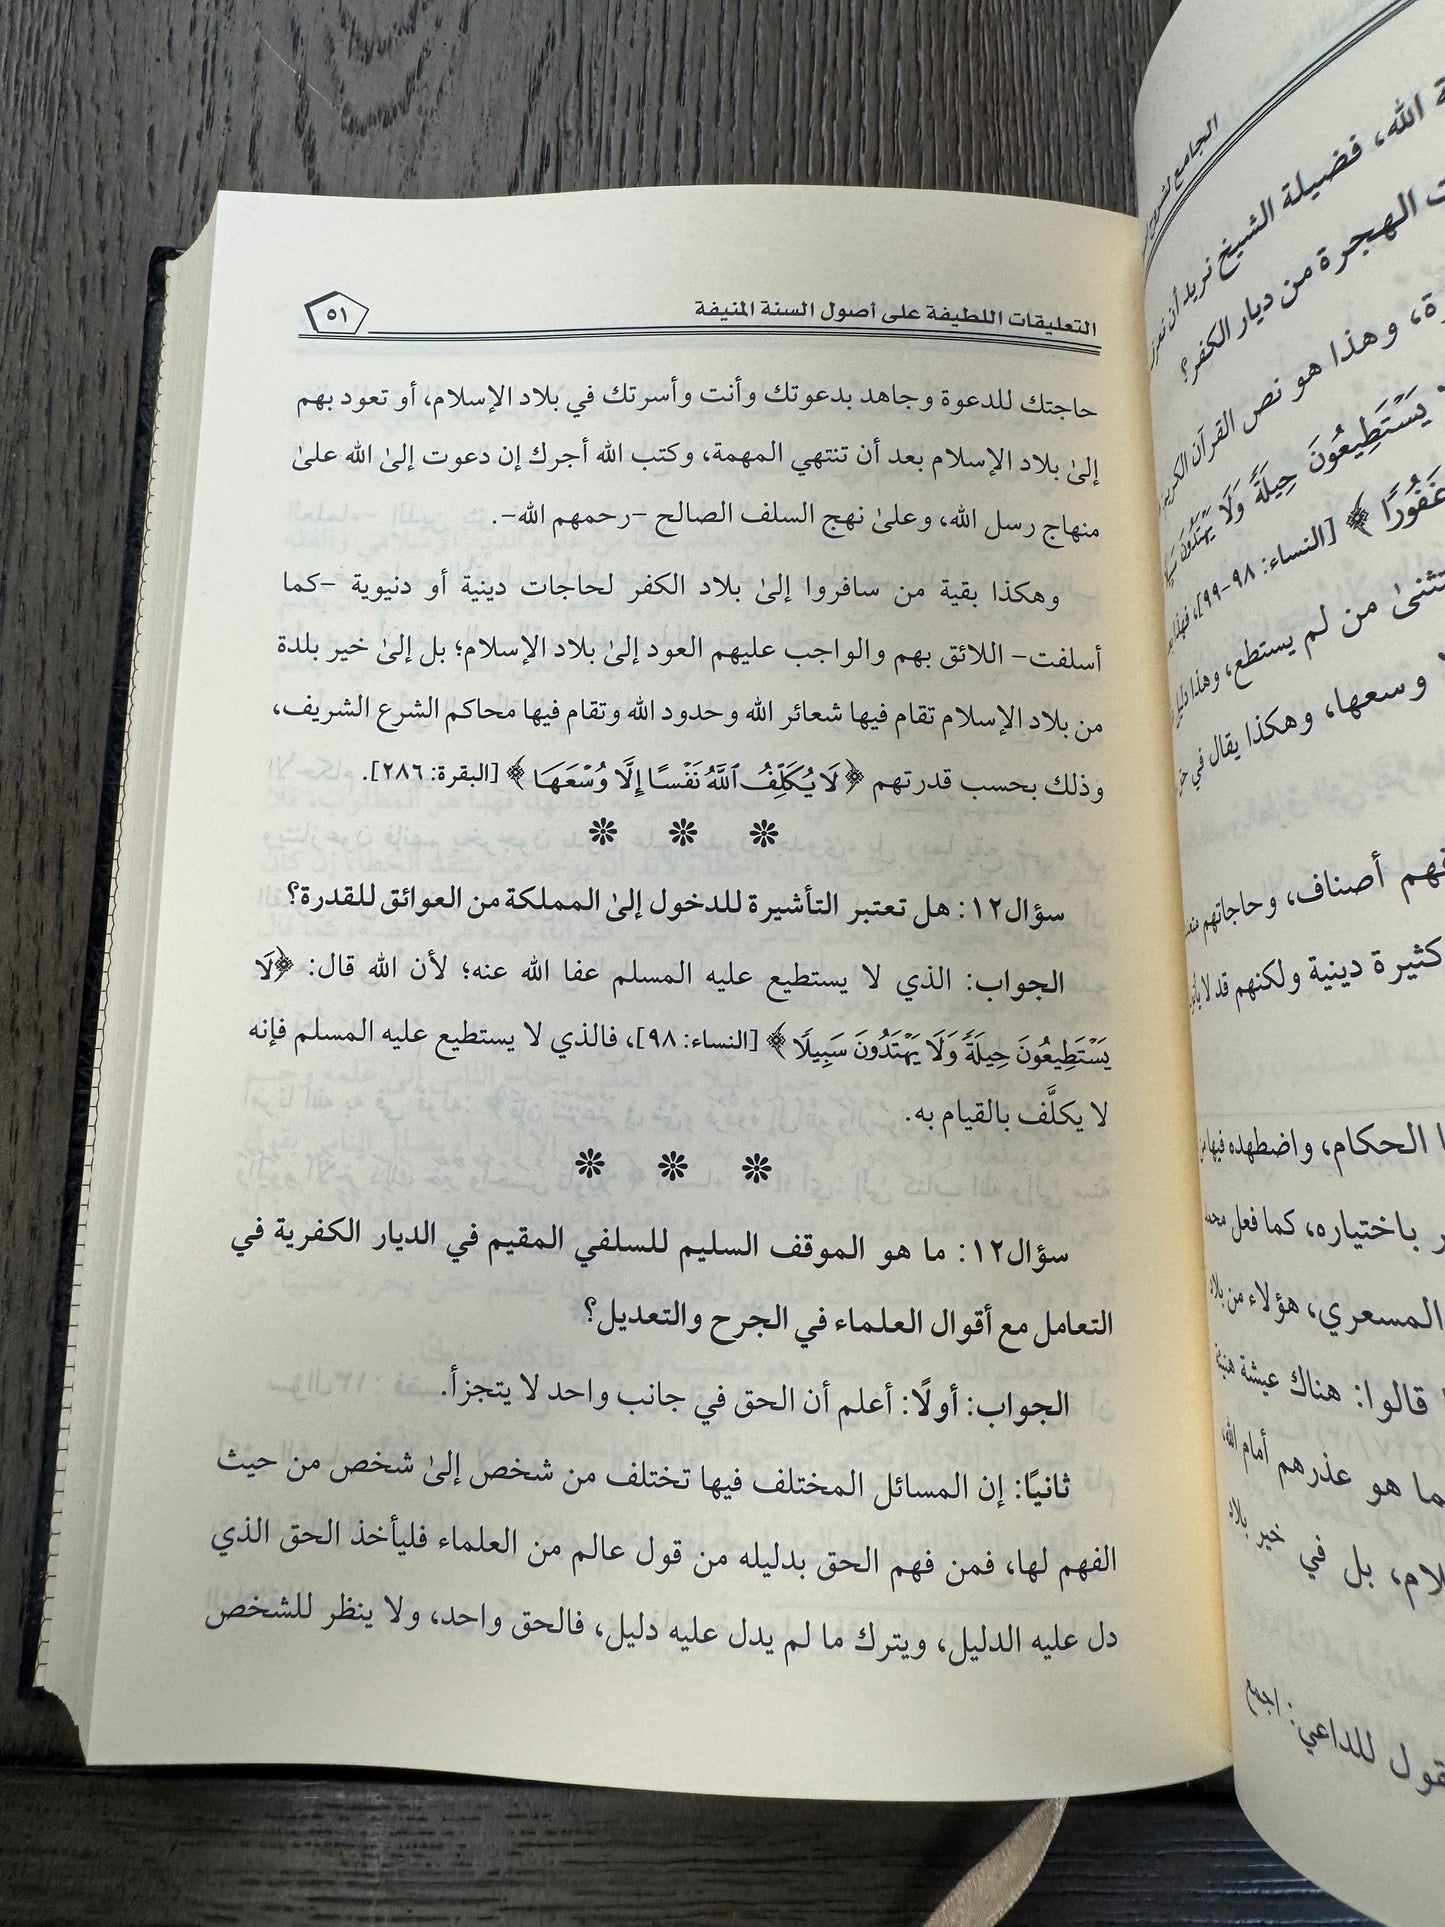 التعليقات اللطيفة على أصول السنة المنيفة
٥١
حاجتك للدعوة وجاهد بدعوتك وأنت وأسرتك في بلاد الإسلام، أو تعود بهم
إلىٰ بلاد الإسلام بعد أن تنتهي المهمة، وكتب الله أجرك إن دعوت إلىٰ الله علىٰ
منهاج رسل الله، وعلىٰ نهج السلف الصالح -رحمهم الله-.
وهكذا بقية من سافروا إلىٰ بلاد الكفر لحاجات دينية أو دنيوية -كما
أسلفت- اللائق بهم والواجب عليهم العود إلىٰ بلاد الإسلام؛ بل إلىٰ خير بلدة
من بلاد الإسلام تقام فيها شعائر الله وحدود الله وتقام فيها محاكم الشرع الشريف،
وذلك بحسب قدرتهم ﴿لَا يُكَلِّفُ ٱللَّهُ نَفْسًا إِلَّا وُسْعَهَا﴾ [البقرة: ٢٨٦].
سؤال١٢: هل تعتبر التأشيرة للدخول إلىٰ المملكة من العوائق للقدرة؟
الجواب: الذي لا يستطيع عليه المسلم عفا الله عنه؛ لأن الله قال: ﴿لَا
يَسْتَطِيعُونَ حِيلَةً وَلَا يَهْتَدُونَ سَبِيلًا﴾ [النساء: ٩٨]، فالذي لا يستطيع عليه المسلم فإنه
لا يكلَّف بالقيام به.
سؤال١٢: ما هو الموقف السليم للسلفي المقيم في الديار الكفرية في
التعامل مع أقوال العلماء في الجرح والتعديل؟
الجواب: أولًا: أعلم أن الحق في جانب واحد لا يتجزأ.
ثانيًا: إن المسائل المختلف فيها تختلف من شخص إلىٰ شخص من حيث
الفهم لها، فمن فهم الحق بدليله من قول عالم من العلماء فليأخذ الحق الذي
دل عليه الدليل، ويترك ما لم يدل عليه دليل، فالحق واحد، ولا ينظر للشخص
الجامع لشروح
الله، فضيلة الشيخ نريد أن نعرف
الهجرة من ديار الكفر؟
وهذا هو نص القرآن الكريم
يَسْتَطِيعُونَ حِيلَةً وَلَا يَهْتَدُونَ
غَفُورًا﴾ [النساء: ٩٨-٩٩]، فهذا
من لم يستطع، وهذا دليل
وسعها، وهكذا يقال في
فهم أصناف، وحاجاتهم
كثيرة دينية ولكنهم قد لا
الحكام، واضطهده فيها من
باختياره، كما فعل محمد
المسعري، هؤلاء من بلاد
قالوا: هناك عيشة هنيئة
ما هو عذرهم أمام الله،
بل في خير بلاد
للداعي: اجمع